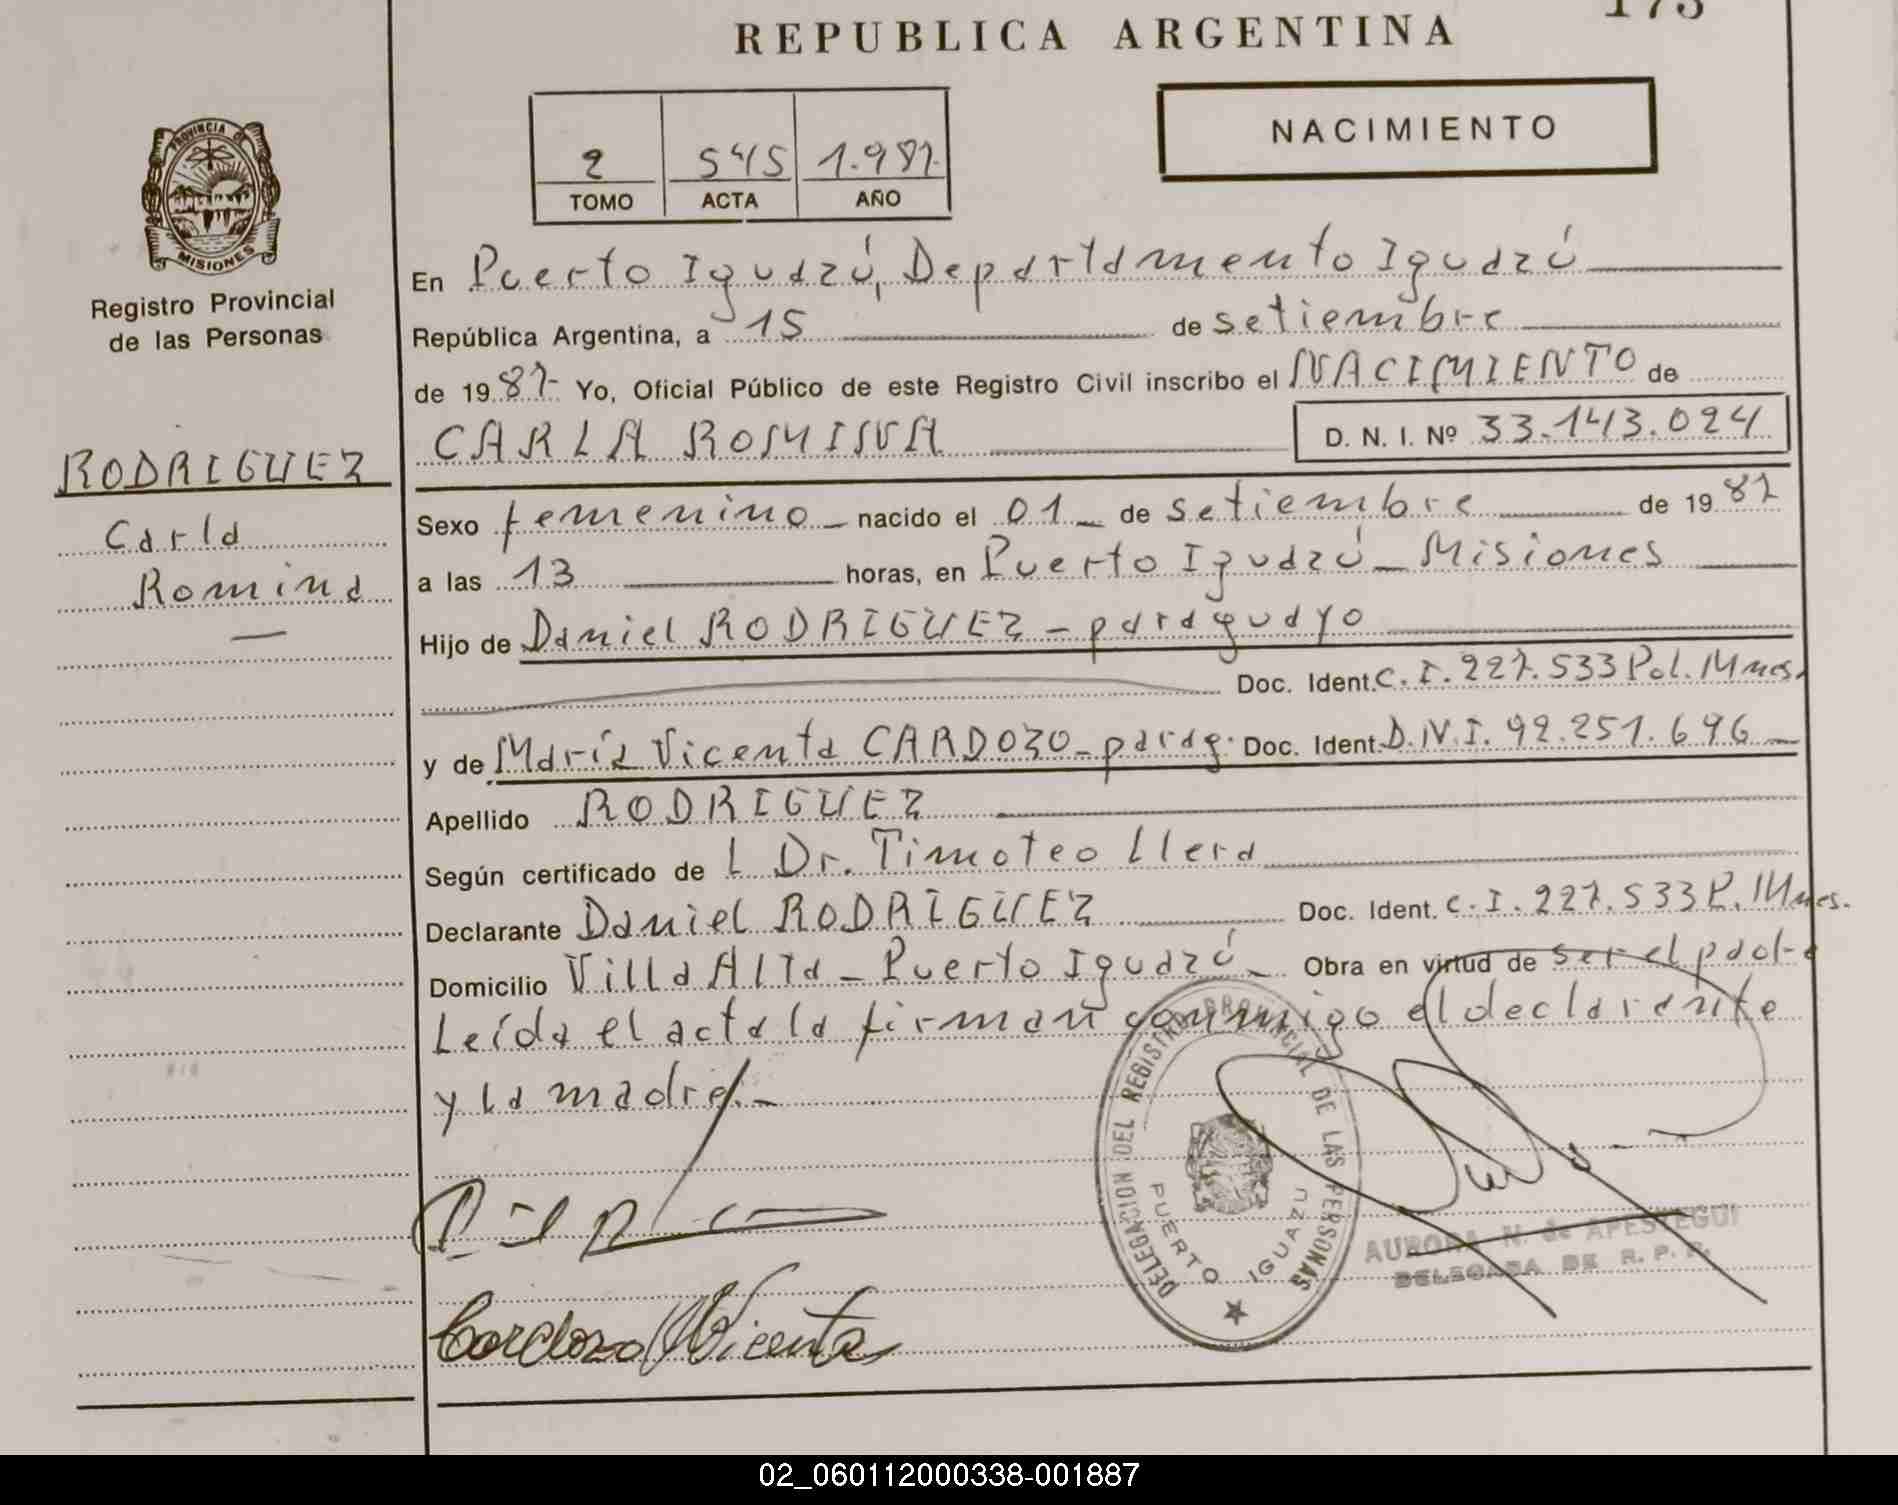 REPUBLICA ARGENTINA
173
PROVINCIA DE
MISIONES
Registro Provincial
de las Personas
RODRIGUEZ
Carla
Romina
2 545 1.987
TOMO ACTA AÑO
NACIMIENTO
En Puerto Iguazú, Departamento Iguazú
República Argentina, a 15 de setiembre
de 1987 Yo, Oficial Público de este Registro Civil inscribo el NACIMIENTO de
CARLA ROMINA D. N. I. Nº 33.143.024
Sexo femenino nacido el 01 de setiembre de 1987
a las 13 horas, en Puerto Iguazú - Misiones
Hijo de Daniel RODRIGUEZ - paraguayo
Doc. Ident. C. I. 227.533 Pol. Mnes.
y de María Vicenta CARDOZO - parag. Doc. Ident. D.N.I. 92.251.696
Apellido RODRIGUEZ
Según certificado de L Dr. Timoteo Llera
Declarante Daniel RODRIGUEZ Doc. Ident. C. I. 227.533 P. Mnes.
Domicilio Villa Alta - Puerto Iguazú Obra en virtud de ser el padre
Leída el acta la firman conmigo el declarante
y la madre.-
DELEGACION DEL REGISTRO PROVINCIAL DE LAS PERSONAS
PUERTO IGUAZU
AURORA N. de APESTEGUI
DELEGADA DE R. P. P.
Cardozo M Vicenta
02_060112000338-001887